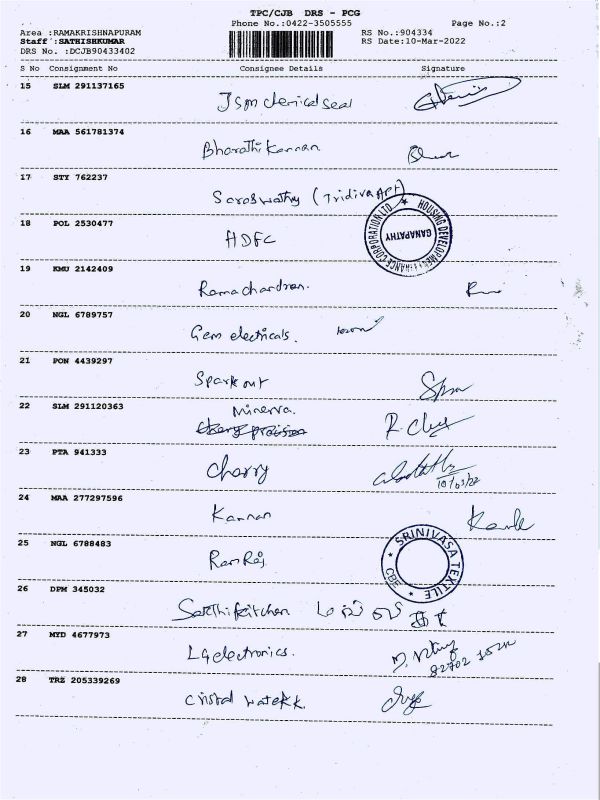 TPC/CJB DRS - PCG
Phone No.:0422-3505555 Page No.:2
Area :RAMAKRISHNAPURAM RS No.:904334
Staff :SATHISHKUMAR RS Date:10-Mar-2022
DRS No. :DCJB90433402
S No Consignment No Consignee Details Signature
15 SLM 291137165
Jsm chemical seal
16 MAA 561781374
Bharathi Kannan
17 STY 762237
Saraswathy (Tridiva Apt)
18 POL 2530477
HDFC
HOUSING DEVELOPMENT FINANCE CORPORATION LTD
GANAPATHY
19 KMU 2142409
Ramachandran.
20 NGL 6789757
Gem electricals.
21 PON 4439297
Spark out
22 SLM 291120363
Minerva.
23 PTA 941333
Cherry
10/03/22
24 MAA 277297596
Kannan
25 NGL 6788483
RamRaj
SRINIVASA TEXTILE
CBE
26 DPM 345032
Sakthi kitchen
27 MYD 4677973
LG electronics.
28 TRZ 205339269
Cristal